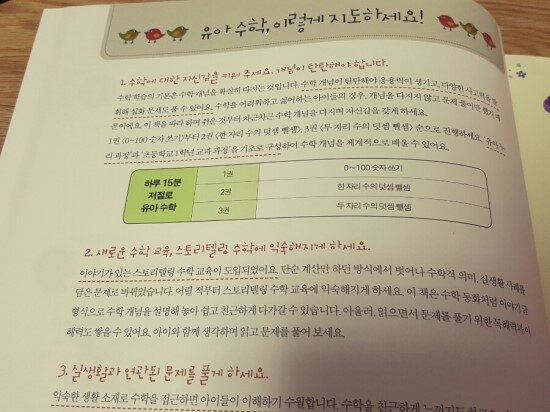 유아 수학, 이렇게 지도하세요!
1. 수학에 대한 자신감을 키워 주세요. 개념이 탄탄해야 합니다.
수학 학습의 기본은 수학 개념을 확실히 다지는 것입니다. 수학 개념이 탄탄해야 응용력이 생기고, 다양한 사고력을 발
휘해 심화 문제도 풀 수 있어요. 수학을 어려워하고 싫어하는 아이들의 경우, 개념을 다지지 않고 문제 풀이만 했기 때
문이에요. 이 책을 따라 하며 쉬운 것부터 차근차근 수학 개념을 다지며 자신감을 갖게 하세요.
1권 (0~100 숫자 쓰기)부터 2권 (한 자리 수의 덧셈 뺄셈), 3권 (두 자리 수의 덧셈 뺄셈) 순으로 진행하세요. 유아
리 과정'과 '초등학교 1학년 교과 과정'을 기초로 구성하여 수학 개념을 체계적으로 배울 수 있어요.
하루 15분
저절로
유아 수학
1권 0~100 숫자 쓰기
2권 한 자리 수의 덧셈 뺄셈
3권 두 자리 수의 덧셈 뺄셈
2. 새로운 수학 교육, 스토리텔링 수학에 익숙해지게 하세요.
이야기가 있는 스토리텔링 수학 교육이 도입되었어요. 단순 계산만 하던 방식에서 벗어나 수학적 의미, 실생활 사례를
담은 문제로 바뀌었습니다. 어릴 적부터 스토리텔링 수학 교육에 익숙해지게 하세요. 이 책은 수학 동화처럼 이야기 글
형식으로 수학 개념을 설명해 놓아 쉽고 친근하게 다가갈 수 있습니다. 아울러, 읽으면서 문제를 풀기 위한 독해력과 이
해력도 쌓을 수 있어요. 아이와 함께 생각하며 읽고 문제를 풀어 보세요.
3. 실생활과 연관된 문제를 풀게 하세요.
익숙한 생활 소재로 수학을 접근하면 아이들이 이해하기 수월합니다. 수학을 친근하게 느끼기도